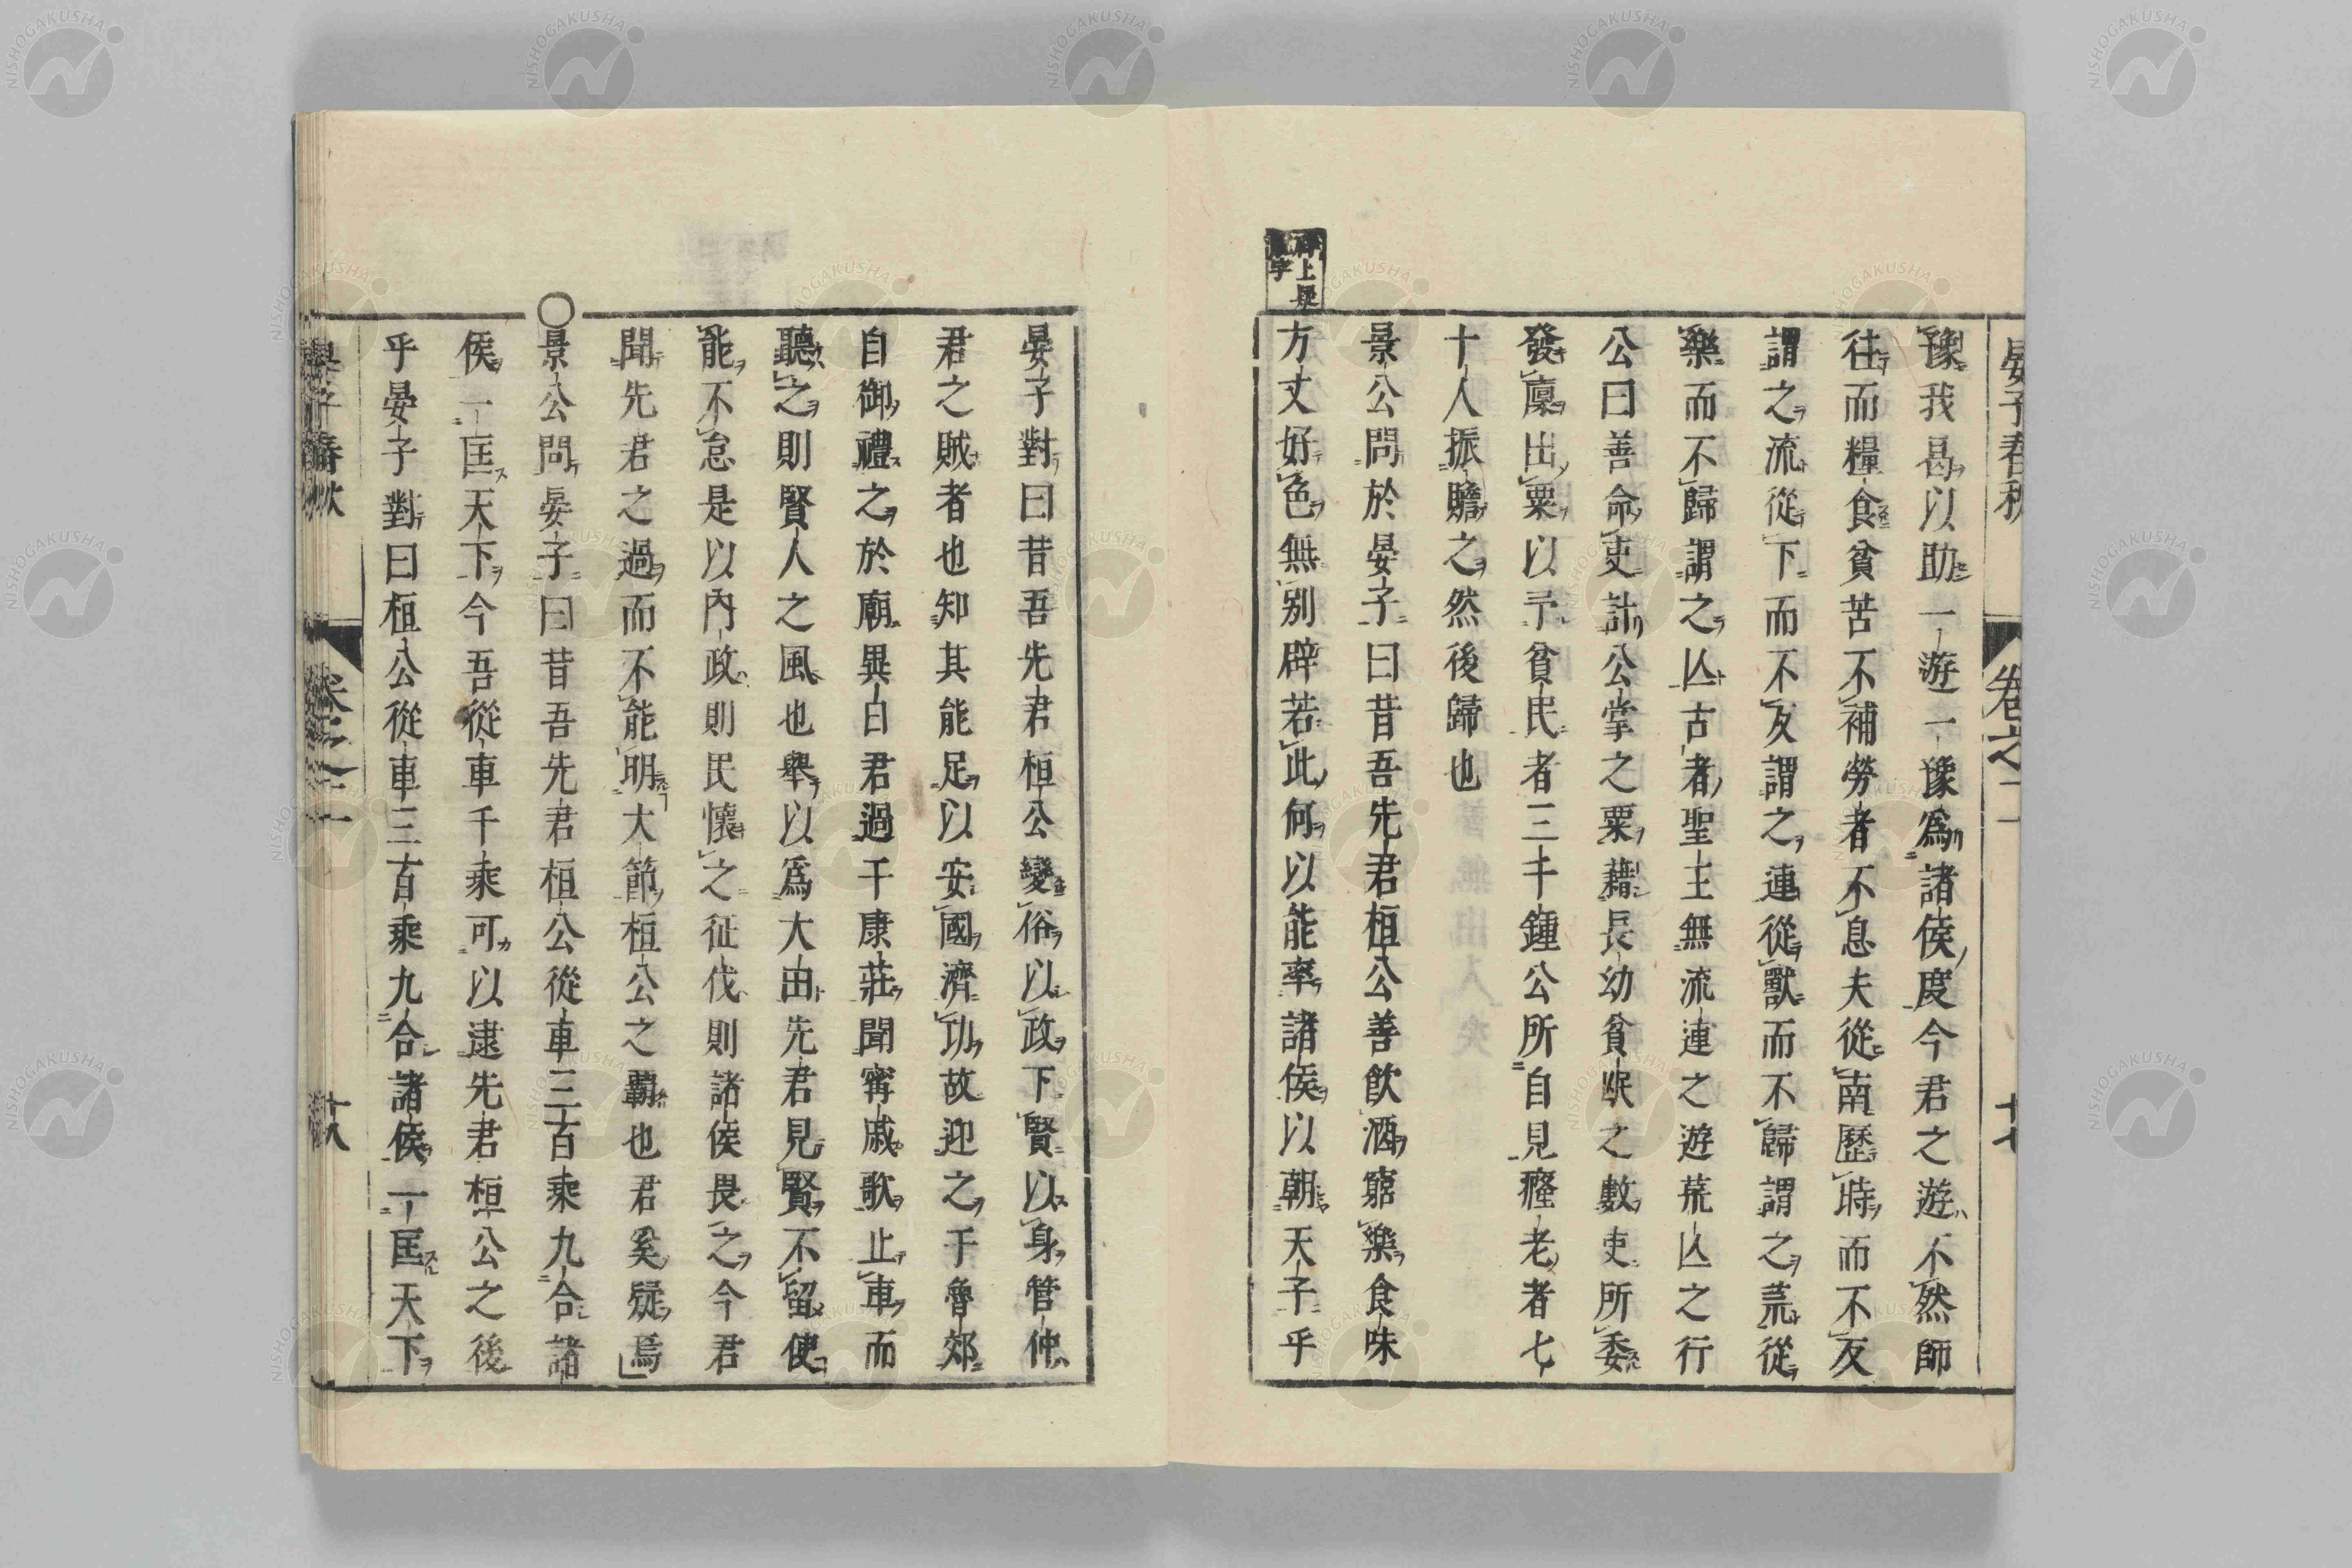 晏子春秋 卷之二 十七
豫我曷以助一遊一豫爲諸侯度今君之遊不然師
往而糧食貧苦不補勞者不息夫從南歷時而不反
謂之流從下而不反謂之連從獸而不歸謂之荒從
樂而不歸謂之亾古者聖王無流連之遊荒亾之行
公曰善命吏計公掌之粟藉長幼貧氓之數吏所委
發廩出粟以予貧民者三千鍾公所自見癃老者七
十人振贍之然後歸也
景公問於晏子曰昔吾先君桓公善飲酒窮樂食味
方丈好色無別辟若此何以能率諸侯以朝天子乎
晏子對曰昔吾先君桓公變俗以政下賢以身管仲
君之賊者也知其能足以安國濟功故迎之于魯郊
自御禮之於廟異日君過于康莊聞甯戚歌止車而
聽之則賢人之風也舉以爲大田先君見賢不留使
能不怠是以內政則民懷之征伐則諸侯畏之今君
聞先君之過而不能明大節桓公之覇也君奚疑焉
○景公問晏子曰昔吾先君桓公從車三百乘九合諸
侯一匡天下今吾從車千乘可以逮先君桓公之後
乎晏子對曰桓公從車三百乘九合諸侯一匡天下
晏子春秋 卷之二 十八
NISHOGAKUSHA